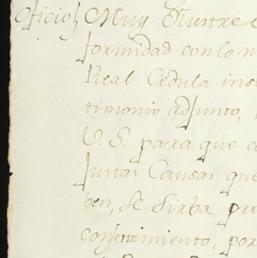 Oficio} Muy Ilustre
formidad con lo
Real Cédula ins
timonio adjunto,
U. S. para que
Justas Causas que
ben, se Sirba pre
consentimiento, por